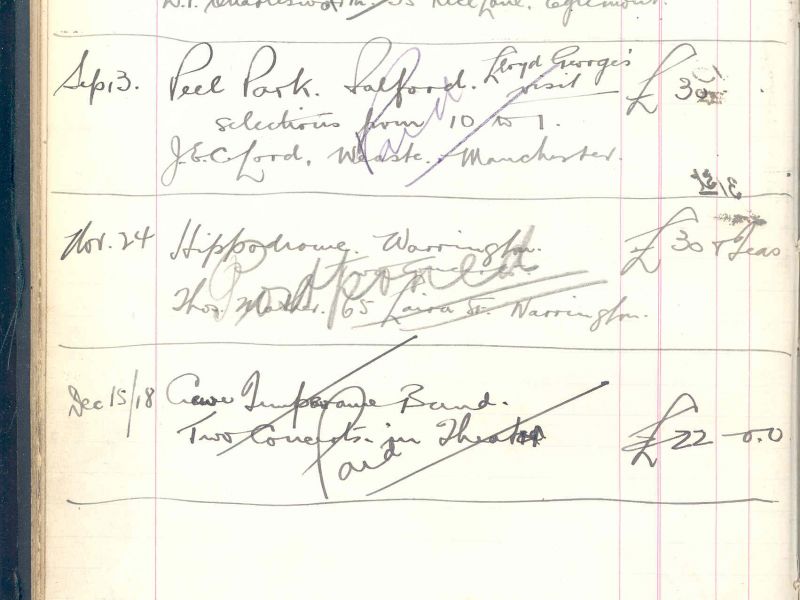 35 Rice Lane. Egremont.
Sep 13. Peel Park. Salford. Lloyd George's visit £30
selections from 10 to 1.
Paid
J.E.C. Lord, Weaste. Manchester.
Nov. 24 Hippodrome. Warrington. £30 + Teas
Postponed
Thos. 65 Laira St. Warrington.
Dec 15/18 Crewe Temperance Band.
Two Concerts. in Theatre £22-0.0
Paid